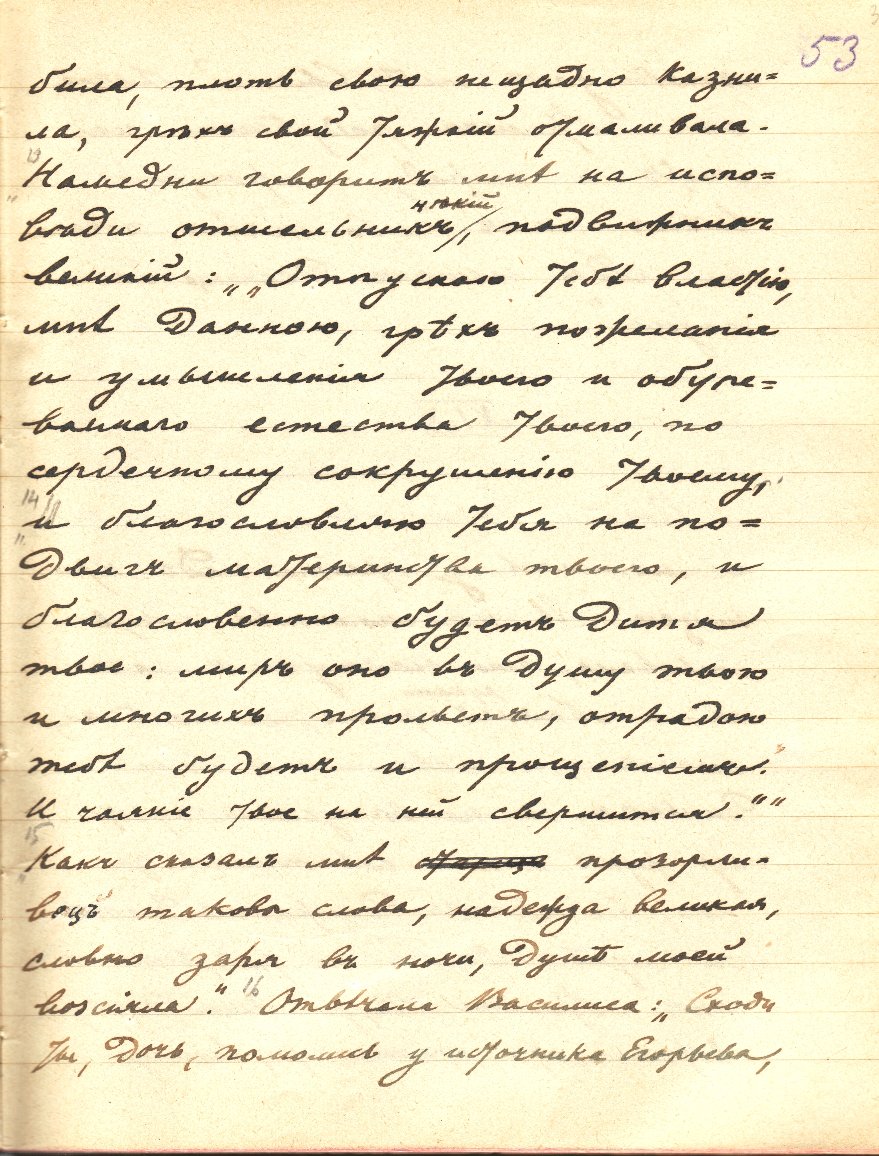 53
била, плоть свою нещадно казни=
ла, грѣхъ свой тяжкій отмаливала.
13
„Намедни говоритъ мнѣ на испо=
нѣкій
вѣди отшельникъ, подвижникъ
великій: „„Отпускаю тебѣ властію,
мнѣ данною, грѣхъ пожеланія
и умышленія твоего и обуре=
ваемаго естества твоего, по
сердечному сокрушенію твоему,
14
и благословляю тебя на по=
„двигъ материнства твоего, и
благословенно будетъ дитя
твое: миръ оно въ душу твою
и многихъ прольетъ, отрадою
тебѣ будетъ и прощеніемъ.
И чаяніе твое на ней свершится.““
15
„Какъ сказалъ мнѣ старецъ прозорли=
вецъ таковы слова, надежда великая,
словно заря въ ночи, душѣ моей
возсіяла.“ 16 Отвѣчала Василиса: „Сходи
ты, дочь, помолись у источника Егорьева,